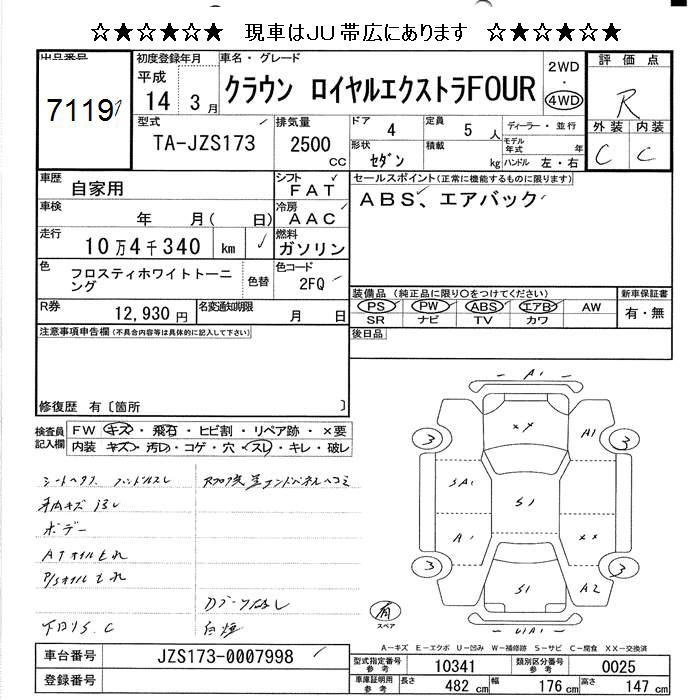 ☆★☆★☆★ 現車はJU帯広にあります ☆★☆★☆★
出品番号 初度登録年月 車名・グレード 2WD 評価点
7119
平成 14 3月 クラウン ロイヤルエクストラFOUR ・ 4WD R
型式 排気量 ドア 4 定員 5人 ディーラー・並行 外装 内装
TA-JZS173 2500 CC 形状 セダン 積載 kg モデル年式 年 ハンドル 左・右 C C
車歴 自家用 シフト FAT セールスポイント(正常に機能するものに限ります)
車検 年 月( 日) 冷房 AAC ABS、エアバック
走行 10万4千340 km 燃料 ガソリン
色 フロスティホワイトトーニング 色替 色コード 2FQ
装備品(純正品に限り○をつけてください) 新車保証書
R券 12,930円 名変通知期限 月 日
PS PW ABS エアB AW 有・無
SR ナビ TV カワ
注意事項申告欄(不具合内容等は具体的に記入して下さい) 後日品
修復歴 有〔箇所 〕
検査員記入欄 FW キズ・飛石・ヒビ割・リペア跡・×要
内装 キズ・汚レ・コゲ・穴・スレ・キレ・破レ
A1
A1
3 3
XX
SA1 S1
A1 XX
3 3
S1 A2
ボデー
ATオイルモレ
P/Sオイルモレ
下回りS.C 白煙
スペア
U1A1
A-キズ E-エクボ U-凹み W-補修跡 S-サビ C-腐食 XX-交換済
車台番号 JZS173-0007998 型式指定番号 参考 10341 類別区分番号 参考 0025
登録番号 車庫証明用 参考 長さ 482cm 幅 176cm 高さ 147cm